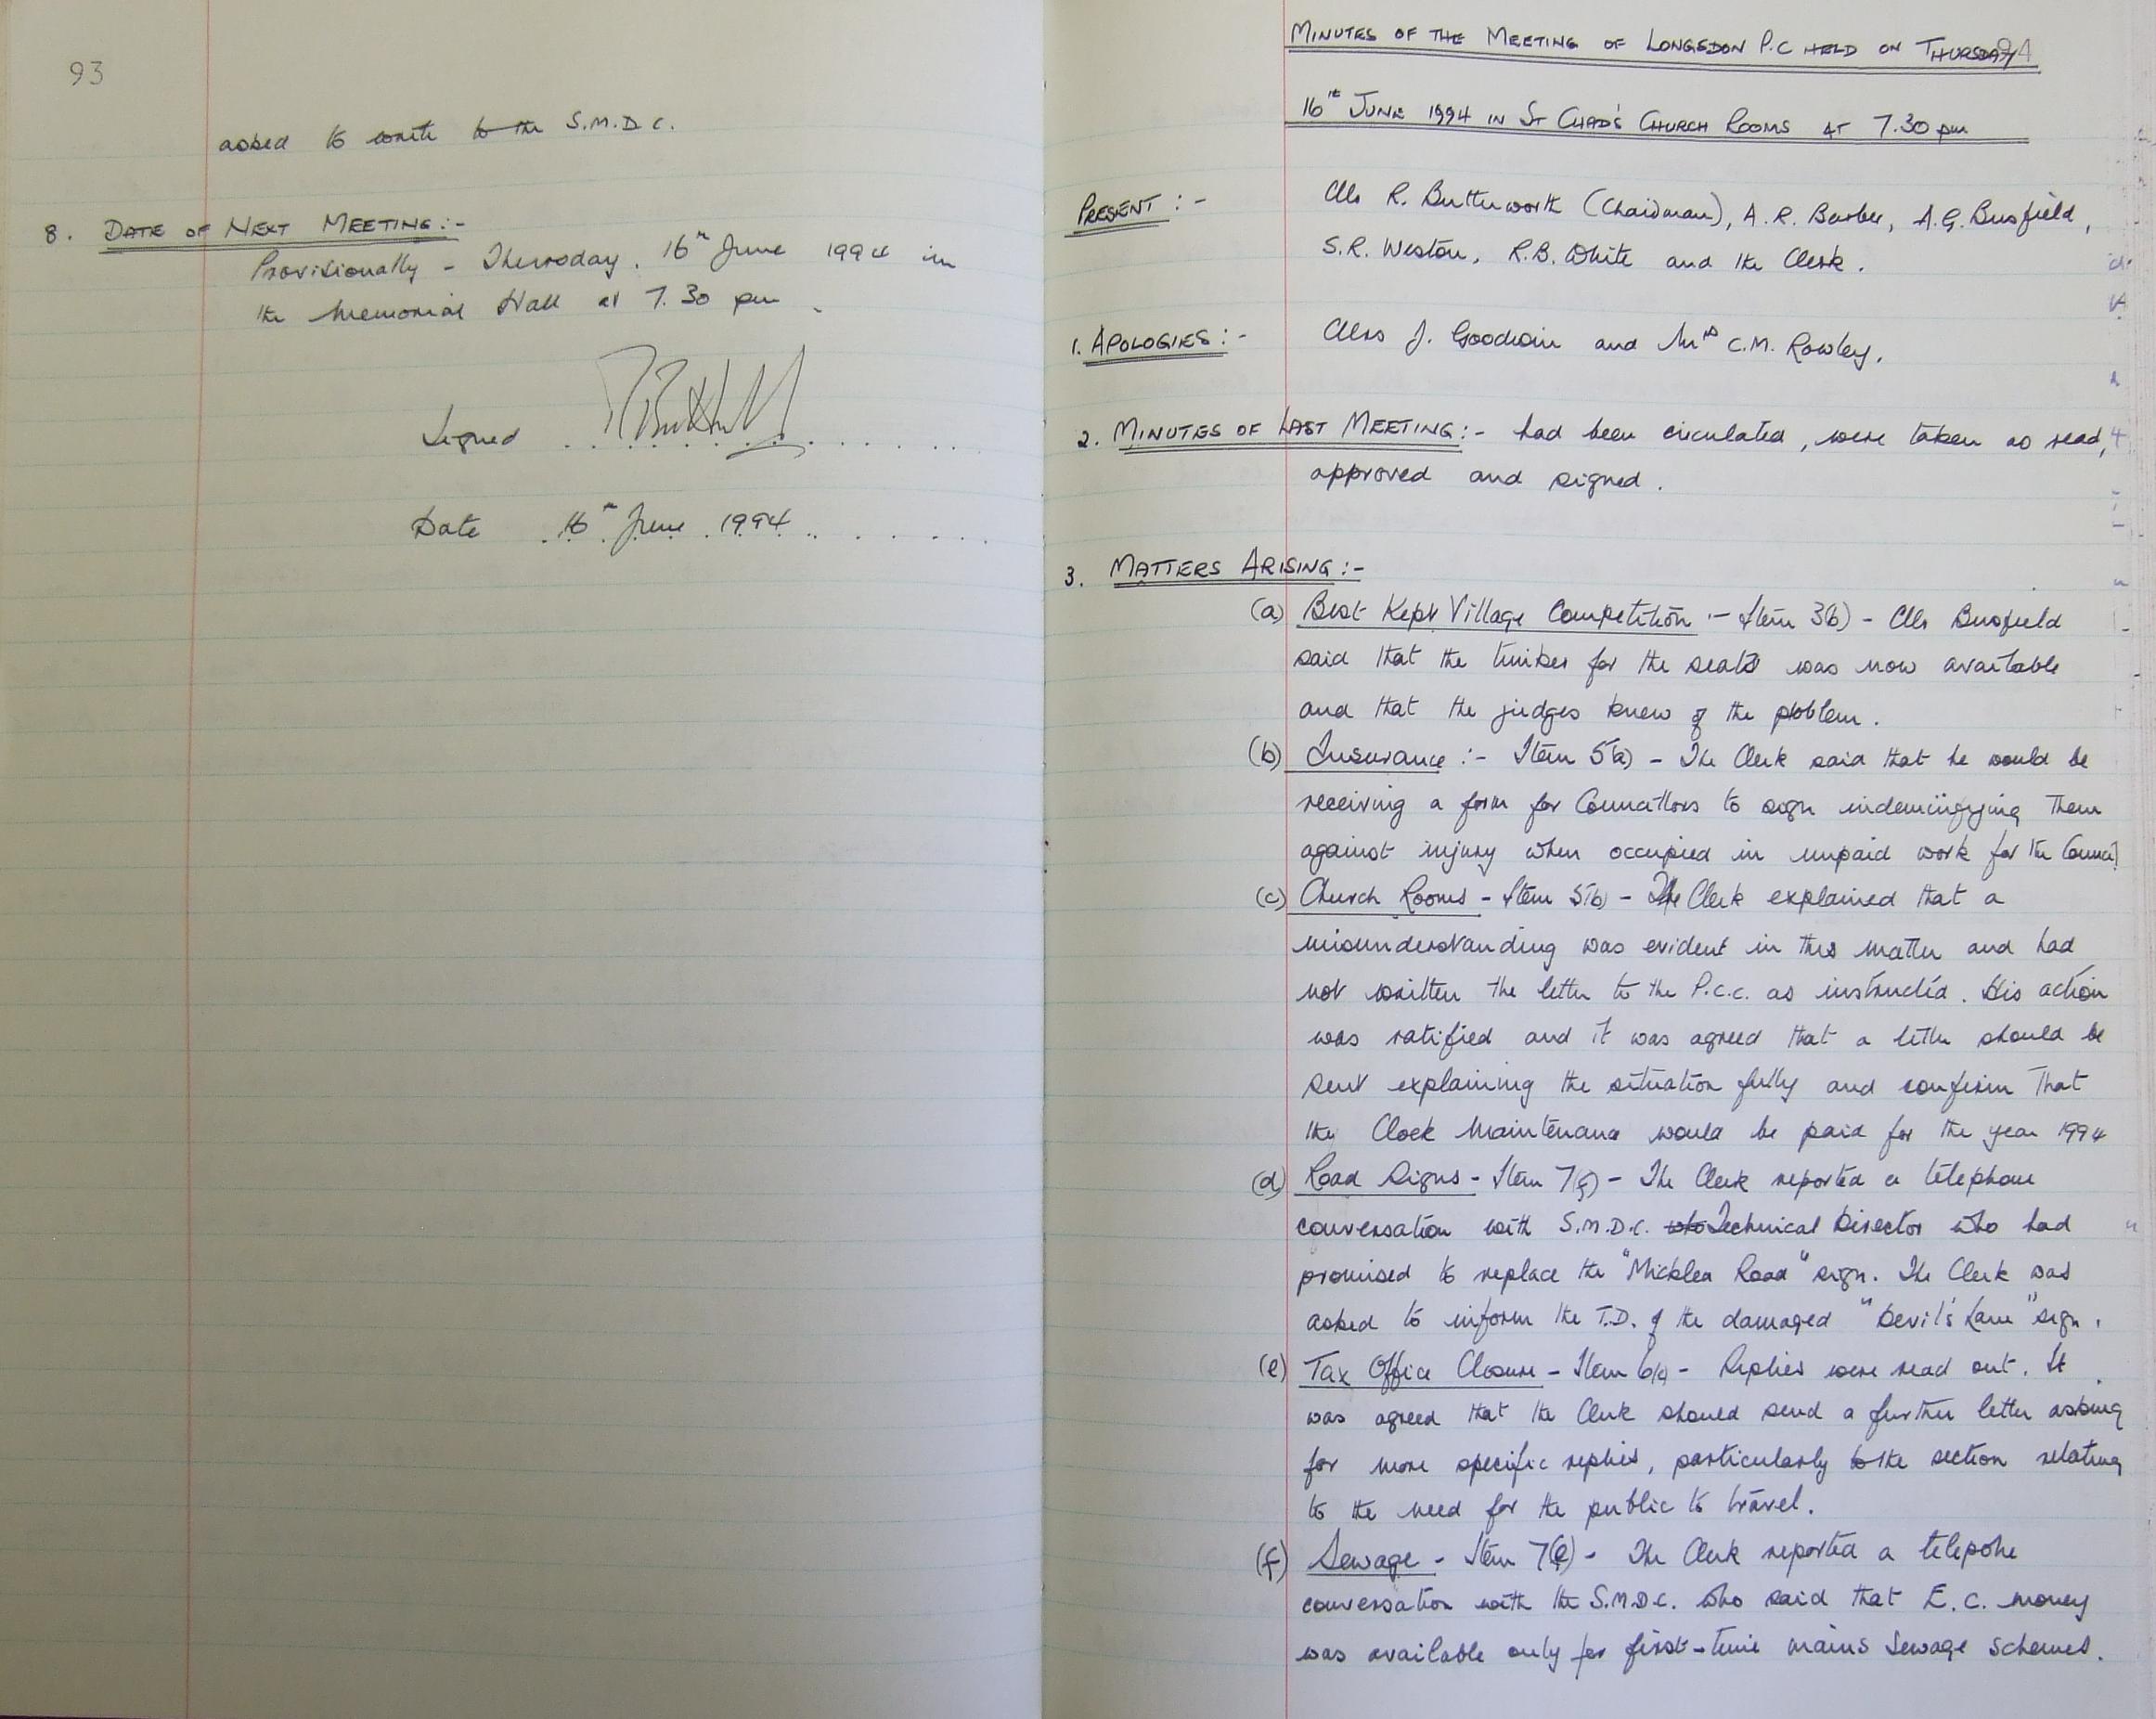 93
asked to write to the S.M.D.C.
8. DATE OF NEXT MEETING:-
Provisionally - Thursday, 16th June 1994 in
the Memorial Hall at 7.30 pm.
Signed
Date 16th June 1994
94
MINUTES OF THE MEETING OF LONGSDON P.C HELD ON THURSDAY
16th JUNE 1994 IN ST CHAD'S CHURCH ROOMS AT 7.30 pm
PRESENT :- Cllr R. Butterworth (Chairman), A.R. Barber, A.G. Busfield,
S.R. Weston, R.B. White and the Clerk.
1. APOLOGIES:- Cllrs J. Goodwin and Mrs C.M. Rowley.
2. MINUTES OF LAST MEETING:- had been circulated, were taken as read,
approved and signed.
3. MATTERS ARISING:-
(a) Best Kept Village Competition :- Item 3(b) - Cllr Busfield
said that the timber for the seats was now available
and that the judges knew of the problem.
(b) Insurance :- Item 5(a) - The Clerk said that he would be
receiving a form for Councillors to sign indemnifying them
against injury when occupied in unpaid work for the Council
(c) Church Rooms - Item 5(b) - The Clerk explained that a
misunderstanding was evident in this matter and had
not written the letter to the P.C.C. as instructed. His action
was ratified and it was agreed that a letter should be
sent explaining the situation fully and confirm that
the Clock Maintenance would be paid for the year 1994
(d) Road Signs - Item 7(g) - The Clerk reported a telephone
conversation with S.M.D.C. who Technical Director who had
promised to replace the "Micklea Road" sign. The Clerk was
asked to inform the T.D. of the damaged "Devil's Lane" sign.
(e) Tax Office Closure - Item 6(a) - Replies were read out. It
was agreed that the Clerk should send a further letter asking
for more specific replies, particularly to the section relating
to the need for the public to travel.
(f) Sewage - Item 7(e) - The Clerk reported a telepohe
conversation with the S.M.D.C. who said that E.C. money
was available only for first-time mains sewage schemes.